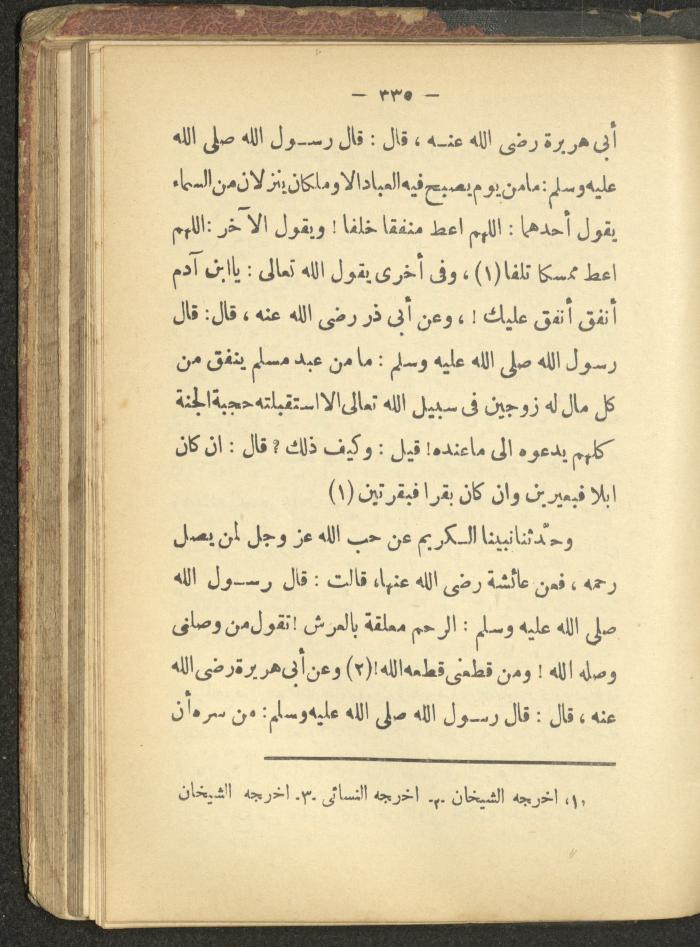 — ٣٣٥ —
أبى هريرة رضى الله عنـه ، قال : قال رسـول الله صلى الله
عليه وسلم : مامن يوم يصبح فيه العباد الا وملكان ينزلان من السماء
يقول أحدهما : اللهم اعط منفقا خلفا ! ويقول الآخر : اللهم
اعط ممسكا تلفا (١) ، وفى أخرى يقول الله تعالى : ياابن آدم
أنفق أنفق عليك ! ، وعن أبى ذر رضى الله عنه ، قال : قال
رسول الله صلى الله عليه وسلم : ما من عبد مسلم ينفق من
كل مال له زوجين فى سبيل الله تعالى الا استقبلته حجبة الجنة
كلهم يدعوه الى ماعنده ! قيل : وكيف ذلك ؟ قال : ان كان
ابلا فبعيرين وان كان بقرا فبقرتين (١)
وحدّثنا نبينا الـكريم عن حب الله عز وجل لمن يصل
رحمه ، فعن عائشة رضى الله عنها ، قالت : قال رسـول الله
صلى الله عليه وسلم : الرحم معلقة بالعرش ! تقول من وصلنى
وصله الله ! ومن قطعنى قطعه الله ! (٢) وعن أبى هريرة رضى الله
عنه ، قال : قال رسـول الله صلى الله عليه وسلم : من سره أن
،١، اخرجه الشيخان -٢- اخرجه النسائى -٣- اخرجه الشيخان